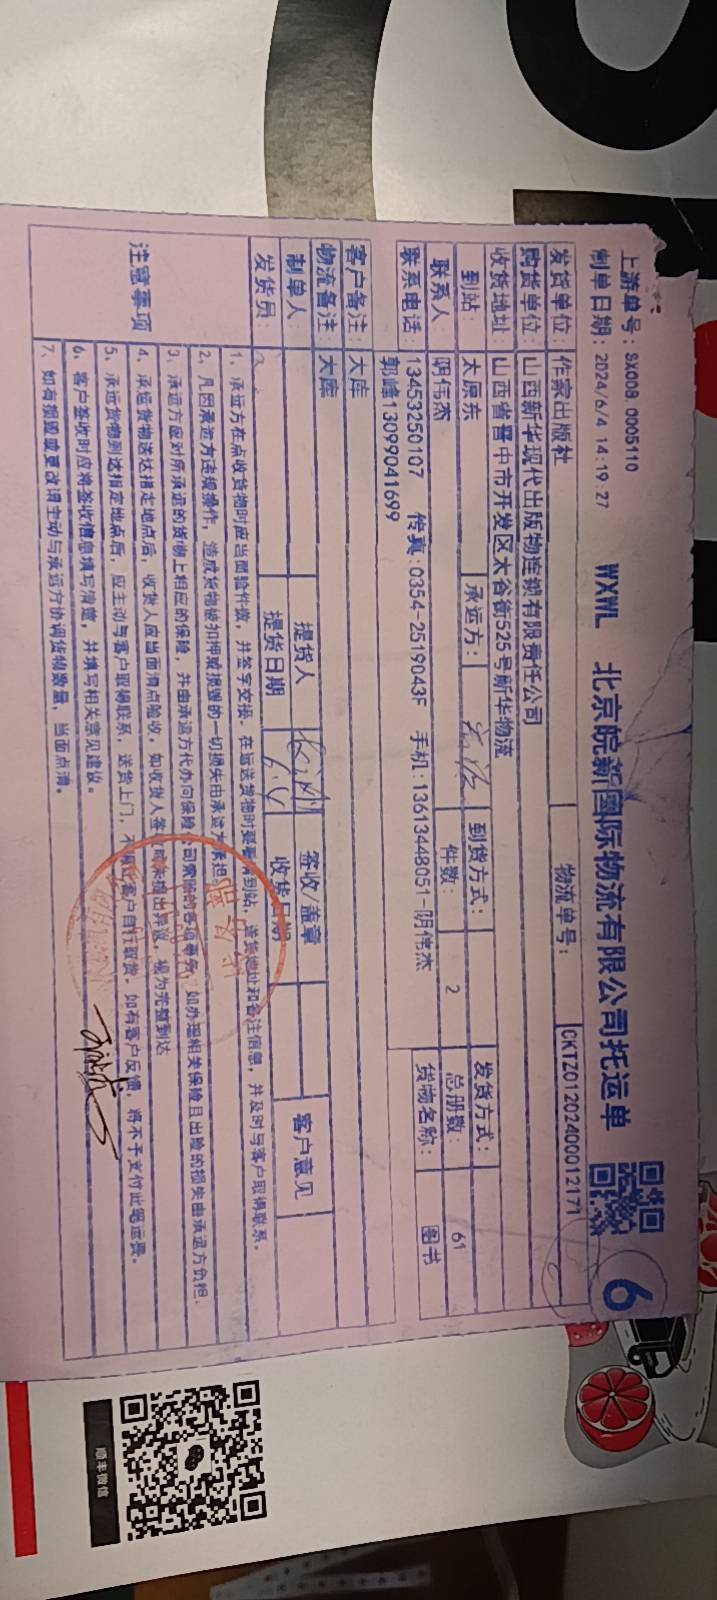 上游单号: SX008.0005110
WXWL 北京皖新国际物流有限公司托运单
6
制单日期: 2024/6/4 14:19:27
物流单号: CKTZ01202400012171
发货单位: 作家出版社
购货单位: 山西新华现代出版物连锁有限责任公司
收货地址: 山西省晋中市开发区太谷街525号新华物流
到站: 太原东 承运方: 到货方式: 发货方式:
联系人 阴伟杰 件数: 2 总册数: 61
联系电话: 13453250107 传真:0354-2519043F 手机:13613448051-阴伟杰 货物名称: 图书
郭峰13099041699
客户备注: 大库
物流备注: 大库
制单人: 提货人 签收/盖章 客户意见
发货员: 提货日期 6.4 收货日期
注意事项
1、承运方在点收货物时应当面验件数，并签字交接。在运送货物时要看清到站，送货地址和备注信息，并及时与客户取得联系。
2、凡因承运方违规操作，造成货物被扣押或损毁的一切损失由承运方承担。
3、承运方应对所承运的货物上相应的保险，并由承运方代办向保险公司索赔的各项事务，如办理相关保险且出险的损失由承运方负担.
4、承运货物送达指定地点后，收货人应当面清点验收，如收货人签收时未提出异议，视为完整到达
5、承运货物到达指定地点后，应主动与客户取得联系，送货上门，不得让客户自行取货，如有客户反馈，将不予支付此笔运费。
6、客户签收时应将签收信息填写清楚，并填写相关意见建议。
7、如有损毁或更改请主动与承运方协调货物数量，当面点清。
顺丰微信